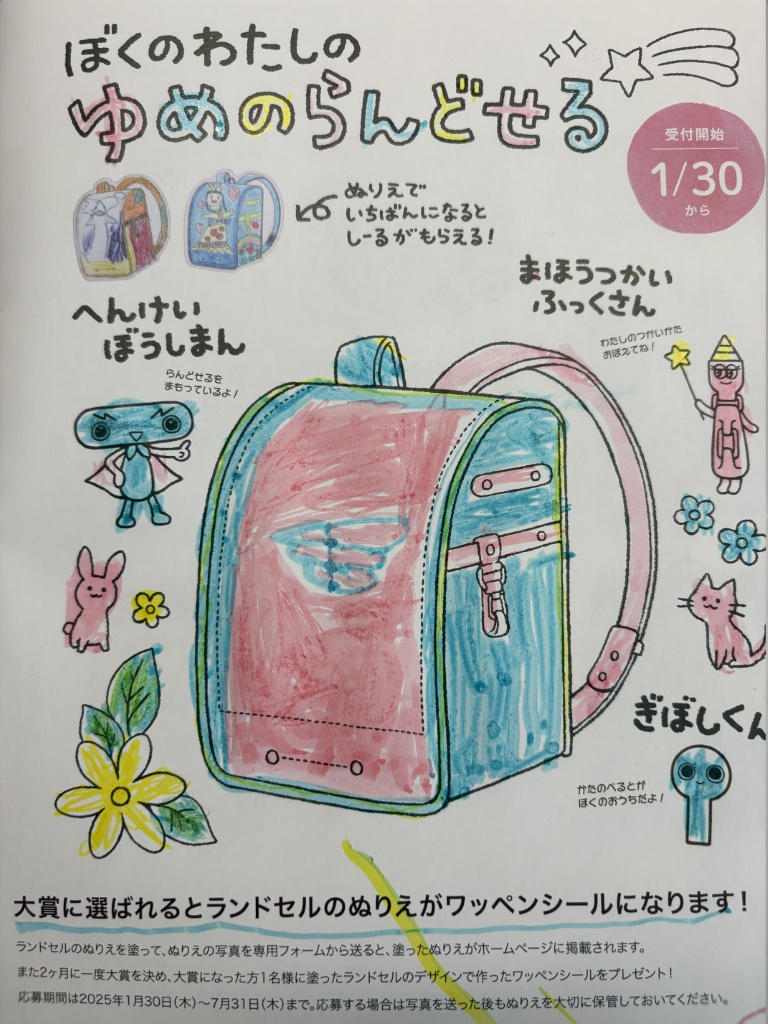 ぼくのわたしの
ゆめのらんどせる
受付開始
1/30
から
ぬりえで
いちばんになると
しーるがもらえる!
まほうつかい
ふっくさん
わたしのつかいかた
おぼえてね!
へんけい
ぼうしまん
らんどせるを
まもっているよ!
ぎぼしくん
かたのべるとが
ぼくのおうちだよ!
大賞に選ばれるとランドセルのぬりえがワッペンシールになります!
ランドセルのぬりえを塗って、ぬりえの写真を専用フォームから送ると、塗ったぬりえがホームページに掲載されます。
また2ヶ月に一度大賞を決め、大賞になった方1名様に塗ったランドセルのデザインで作ったワッペンシールをプレゼント!
応募期間は2025年1月30日(木)~7月31日(木)まで。応募する場合は写真を送った後もぬりえを大切に保管しておいてください。